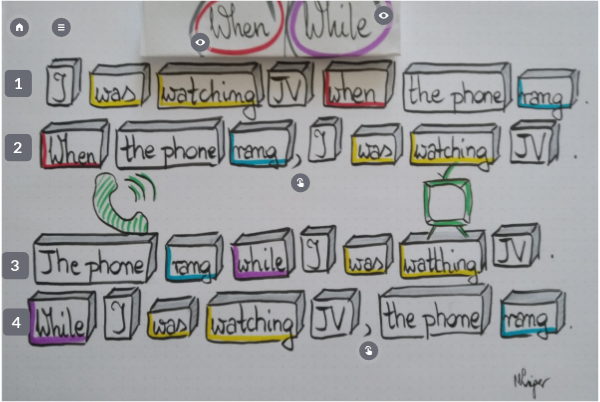 When While
1 I was watching TV when the phone rang.
2 When the phone rang, I was watching TV.
3 The phone rang while I was watching TV.
4 While I was watching TV, the phone rang.